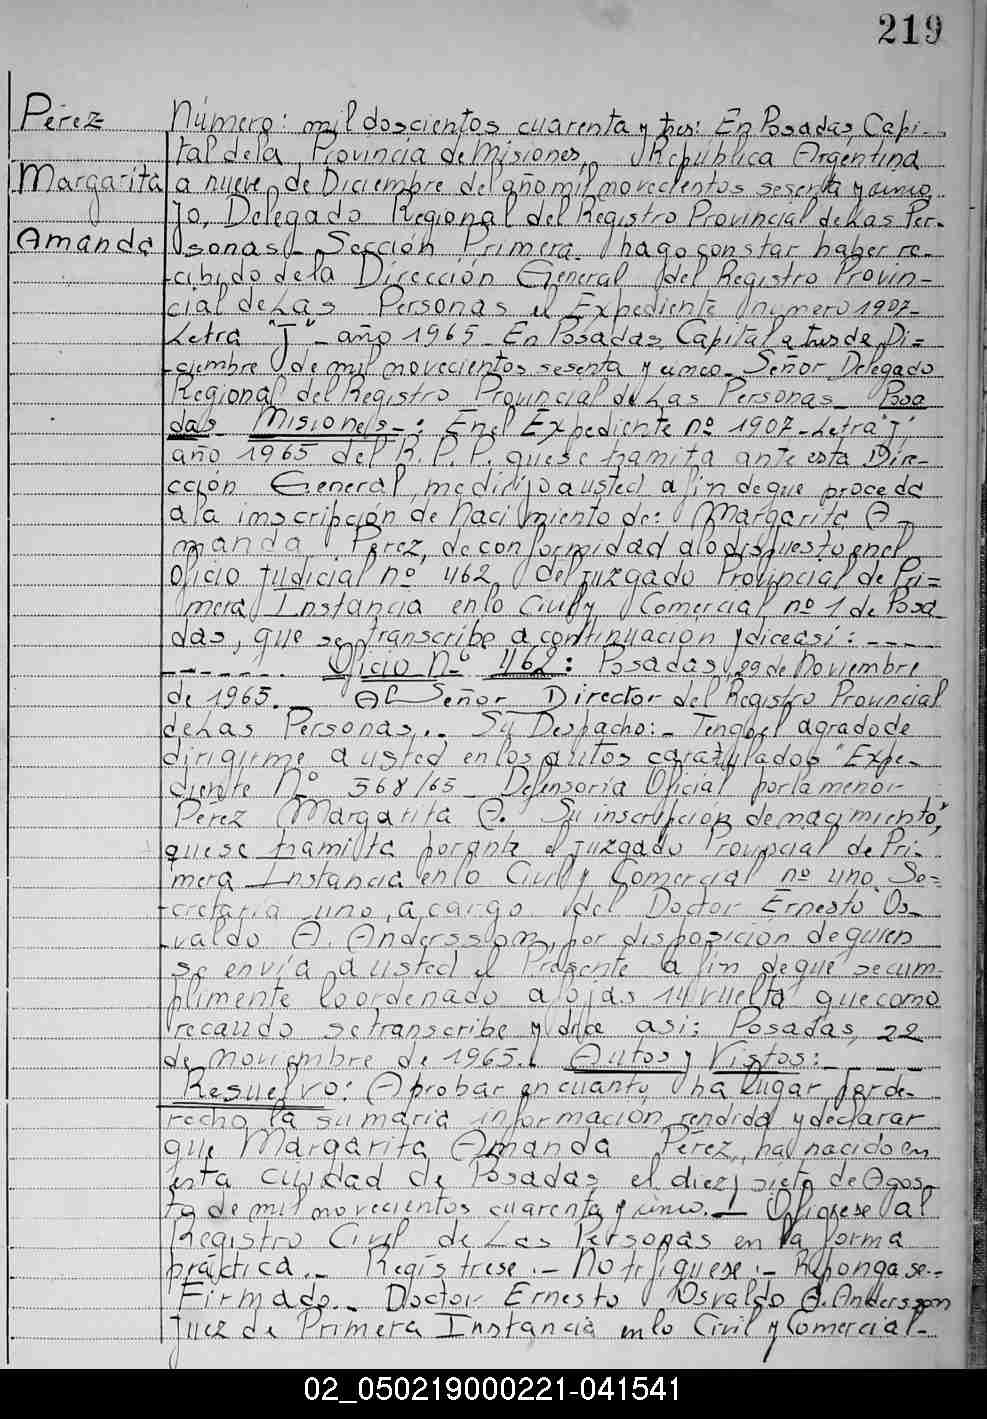 219
Pérez
Margarita
Amanda
Número: mil doscientos cuarenta y tres: En Posadas, Capi-
tal de la Provincia de Misiones, República Argentina
a nueve de Diciembre del año mil novecientos sesenta y cinco
Yo, Delegado Regional del Registro Provincial de Las Per-
sonas - Sección Primera. hago constar haber re-
cibido de la Dirección General del Registro Provin-
cial de Las Personas el Expediente número 1907-
Letra "J" - año 1965 - En Posadas, Capital a tres de Di=
ciembre de mil novecientos sesenta y cinco - Señor Delegado
Regional del Registro Provincial de Las Personas - Posa
das - Misiones - : En el Expediente nº 1907 - Letra "J"
año 1965 del R. P. P. que se tramita ante esta Dire-
cción General, me dirijo a usted a fin de que proceda
a la inscripción de Nacimiento de: Margarita A-
manda Pérez, de conformidad a lo dispuesto en el
Oficio Judicial nº 462 del juzgado Provincial de Pri=
mera Instancia en lo Civil y Comercial nº 1 de Posa
das, que se transcribe a continuación y dice así: - - - -
- - - - - - - Oficio Nº 462: Posadas, 29 de Noviembre
de 1965. - Al Señor Director del Registro Provincial
de Las Personas. - Su Despacho: - Tengo el agrado de
dirigirme a usted en los autos caratulados "Expe-
diente Nº 568/65 - Defensoría Oficial por la menor
Pérez Margarita A. Su inscripción de nacimiento",
que se tramita por ante el juzgado Provincial de Pri-
mera Instancia en lo Civil y Comercial nº uno, Se=
cretaría uno, a cargo del Doctor Ernesto Os-
valdo A. Anderssson, por disposición de quien
se envía a usted el Presente a fin de que se cum-
plimente lo ordenado a fojas 14 vuelta que como
recaudo se transcribe y dice así: Posadas, 22
de noviembre de 1965. - Autos y Vistos: - - - - -
Resuelvo: Aprobar en cuanto ha lugar por de-
recho la sumaria información rendida y declarar
que Margarita Amanda Pérez, ha nacido en
esta ciudad de Posadas el diez y siete de Agos-
to de mil novecientos cuarenta y cinco. - Ofíquese al
Registro Civil de Las Personas en la forma
práctica. - Regístrese. - Notifíquese. - Repóngase. -
Firmado. - Doctor Ernesto Osvaldo A. Andersson
Juez de Primera Instancia en lo Civil y Comercial -
02_050219000221-041541